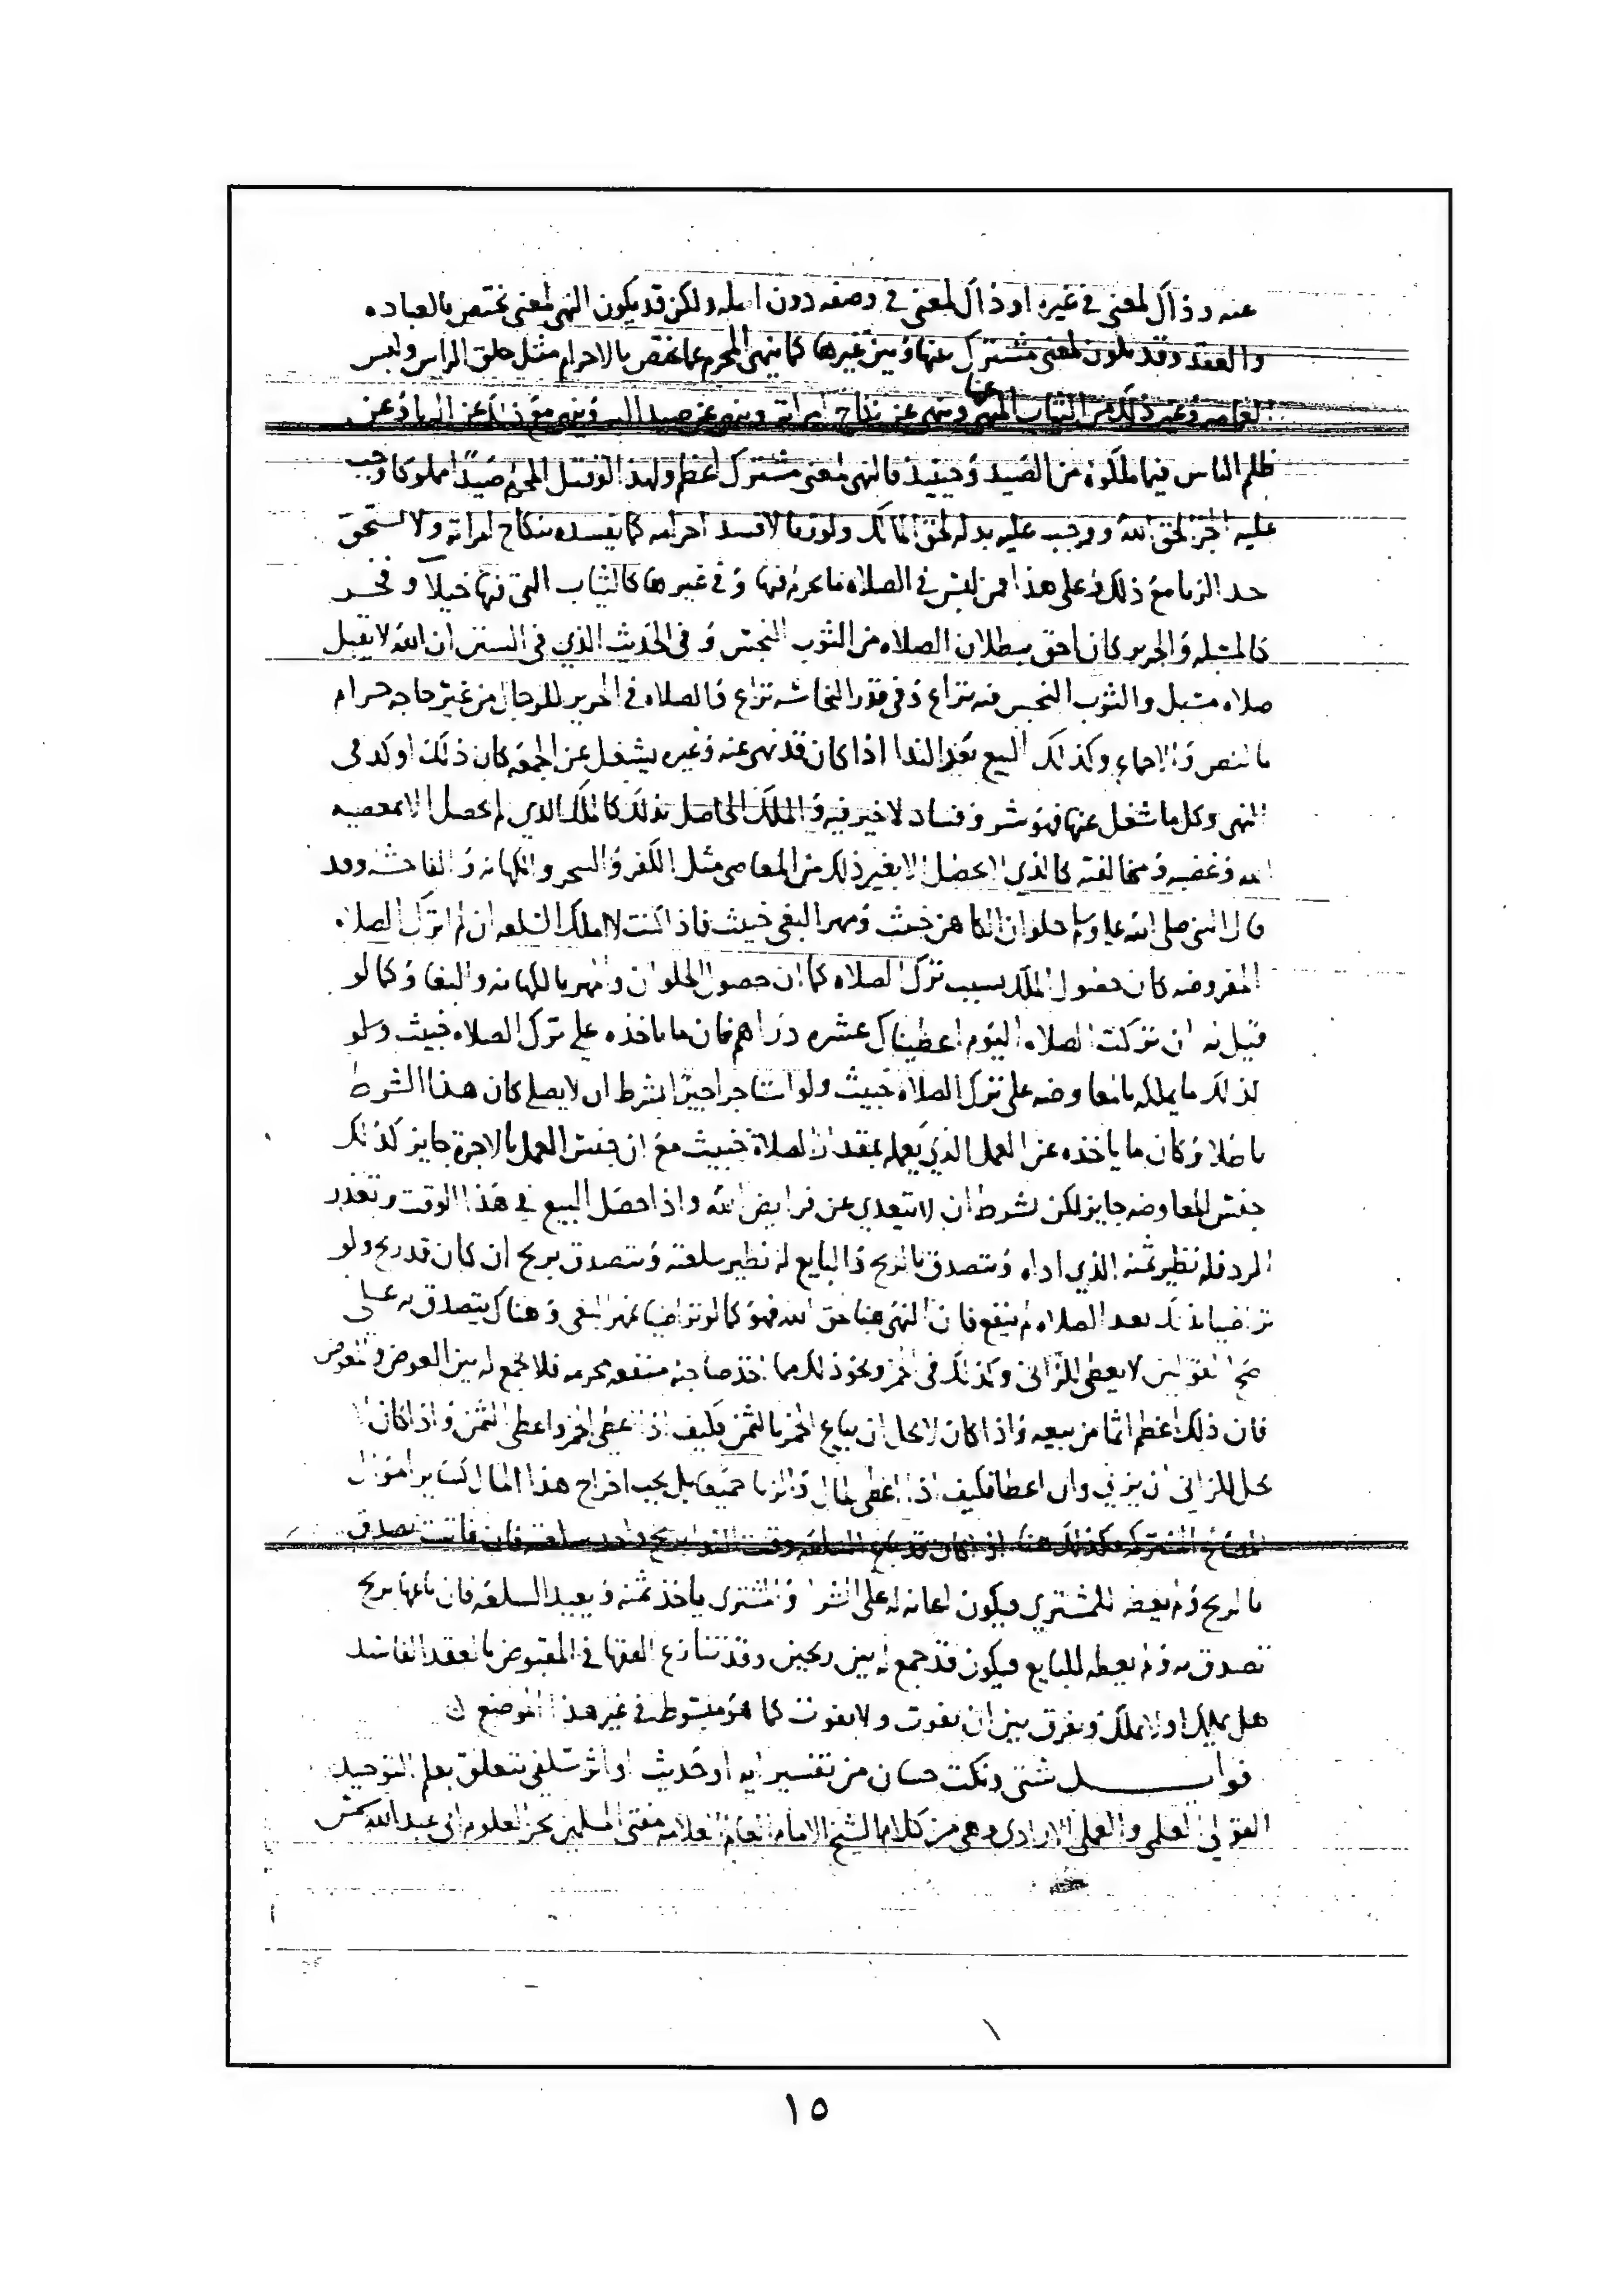 عنه وذاك لمعنى في غيره او ذاك لمعنى في وصفه دون اصله ولكن قد يكون النهي لمعنى يختص بالعباده
والعقد وقد يكون لمعنى مشترك بينها وبين غيرها كما ينهى المحرم عما يختص بالاحرام مثل حلق الراس ولبس
العمامه وغير ذلك من الثياب المنهي عنها وينهى عن نكاح امراته وينهى عن صيد البر وينهى مع ذلك عن الزنا وعن
ظلم الناس فيما ملكوه من الصيد وحينئذ فالنهي لمعنى مشترك اعظم ولهذا لو قتل المحرم صيدا مملوكا وجب
عليه الجزا لحق الله ووجب عليه بدله لحق المالك ولو زنا لافسد احرامه كما يفسده بنكاح امراته ولاستحق
حد الزنا مع ذلك وعلى هذا فمن لبس في الصلاه ما يحرم فيها وفي غيرها كالثياب التي فيها خيلا وفخر
كالمسبله والحرير كان احق ببطلان الصلاه من الثوب النجس وفي الحديث الذي في السنن ان الله لا يقبل
صلاه مسبل والثوب النجس فيه نزاع وفي قدر النجاسه نزاع والصلاه في الحرير للرجال من غير حاجه حرام
بالنص والاجماع وكذلك البيع بعد الندا اذا كان قد نهي عنه وغيره يشغل عن الجمعه كان ذلك اوكد في
النهي وكل ما شغل عنها فهو شر وفساد لا خير فيه والملك الحاصل بذلك كالملك الذي لم يحصل الا بمعصيه
الله وغضبه ومخالفته كالذي لا يحصل الا بغير ذلك من المعاصي مثل الكفر والسحر والكهانه والفاحشه وقد
قال النبي صلى الله عليه وسلم حلوان الكاهن خبيث ومهر البغي خبيث فاذا كنت لا املك السلعه ان لم اترك الصلاه
المفروضه كان حصول الملك بسبب ترك الصلاه كما ان حصول الحلوان والمهر بالكهانه والبغا وكما لو
قيل له ان تركت الصلاه اليوم اعطيناك عشره دراهم فان ما ياخذه على ترك الصلاه خبيث ولو
كذلك ما يملكه بالمعاوضه على ترك الصلاه خبيث ولو استاجر اجيرا بشرط ان لا يصلي كان هذا الشرط
باطلا وكان ما ياخذه عن العمل الذي يعمله بمقدار الصلاة خبيث مع ان جنس العمل بالاجرة جايز كذلك
جنس المعاوضه جايز لكن بشرط ان لا يتعدى عن فرايض الله واذا حصل البيع في هذا الوقت وتعذر
الرد فله نظير ثمنه الذي اداه ويتصدق بالربح والبايع له نظير سلعته ويتصدق بربح ان كان قد ربح ولو
تراضيا بذلك بعد الصلاه لم ينفع فان النهي هنا حق الله فهو كما لو تراضيا بمهر البغي وهناك يتصدق به على
اصح القولين لا يعطى للزاني وكذلك في الخمر ونحو ذلك مما اخذ صاحبه منفعه محرمه فلا يجمع له بين العوض والمعوض
فان ذلك اعظم اثما من بيعه واذا كان لا يحل ان يباع الخمر بالثمن فكيف اذا اعطي الخمر واعطي الثمن واذا كان لا
يحل للزاني ان يزني وان اعطا فكيف اذا اعطي المال والزنا جميعا بل يجب اخراج هذا المال كساير اموال
المصالح المشتركه فكذلك هنا اذا كان قد باع السلعه وقت الندا بربح واخذ سلعته فان فاتت تصدق
بالربح ولم يعطه للمشتري فيكون اعانه له على الشرا والمشتري ياخذ ثمنه ويعيد السلعه فان باعها بربح
تصدق به ولم يعطه للبايع فيكون قد جمع له بين ربحين وقد تنازع الفقها في المقبوض بالعقد الفاسد
هل يملك او لا يملك ويفرق بين ان يفوت ولا يفوت كما هو مبسوط في غير هذا الموضع
فوايد شتى ونكت حسان من تفسير ايه او حديث او اثر سلفي تتعلق بعلم التوحيد
القولي العلمي والعملي الارادي وهي من كلام الشيخ الامام العالم العلامه مفتي المسلمين بحر العلوم ابي عبدالله شمس
١٥